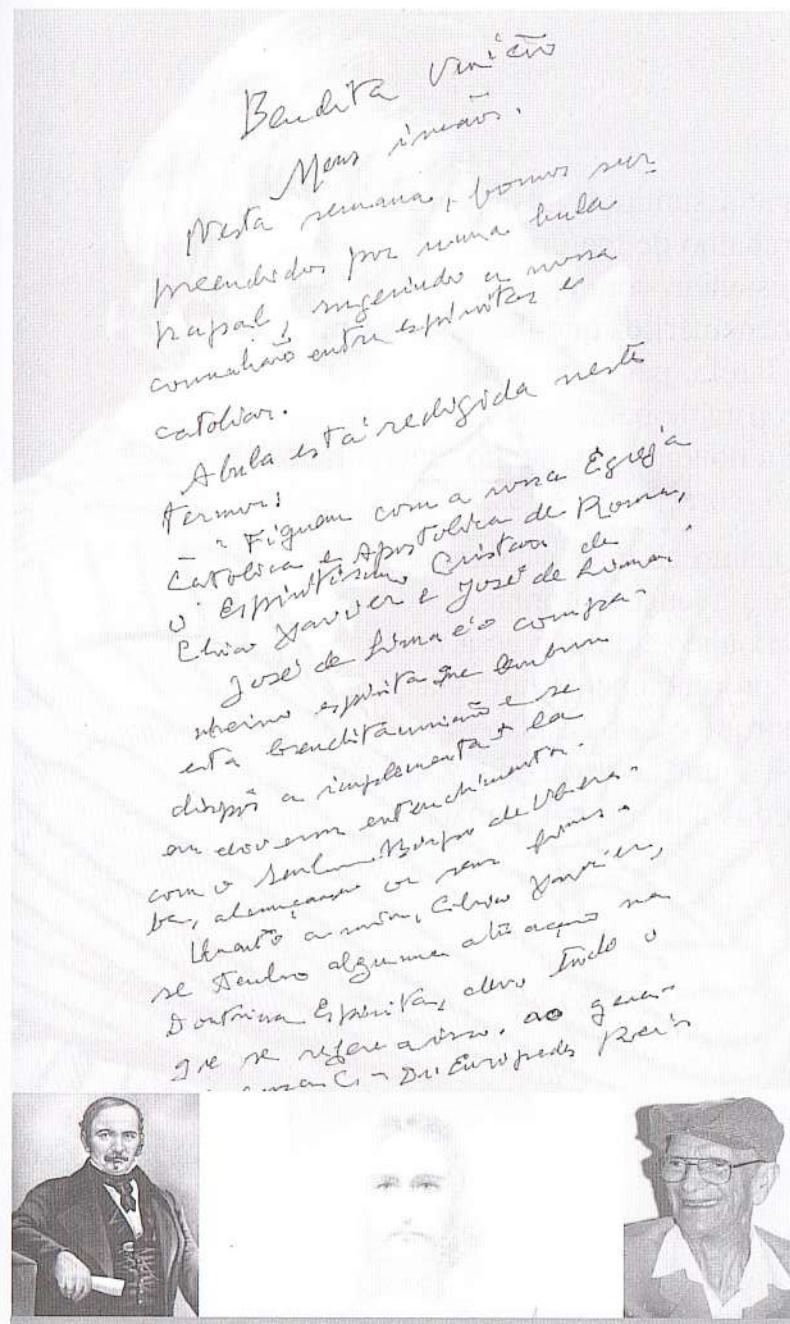 Bendita União
Meus irmãos.
Nesta semana, fomos sur-
preendidos por uma bula
papal, sugerindo a nossa
comunhão entre espíritas e
catolicos.
A bula está redigida neste
termos:
- " Fiquem com a nossa Egreja
Catolica e Apostolica de Roma,
o Espiritismo Cristão de
Chico Xavier e José de Lima"
José de Lima é o compa-
nheiro espirita que lembrou
esta bendita união e se
dispôs a implementá-la
em entendimento
com o Senhor Bispo de Ubera-
ba, alcançando os seus
Quanto a mim, Chico Xavier,
se tenho alguma atuação na
Doutrina Espírita, devo tudo o
que se refere a isso, ao
Dr. Euripedes